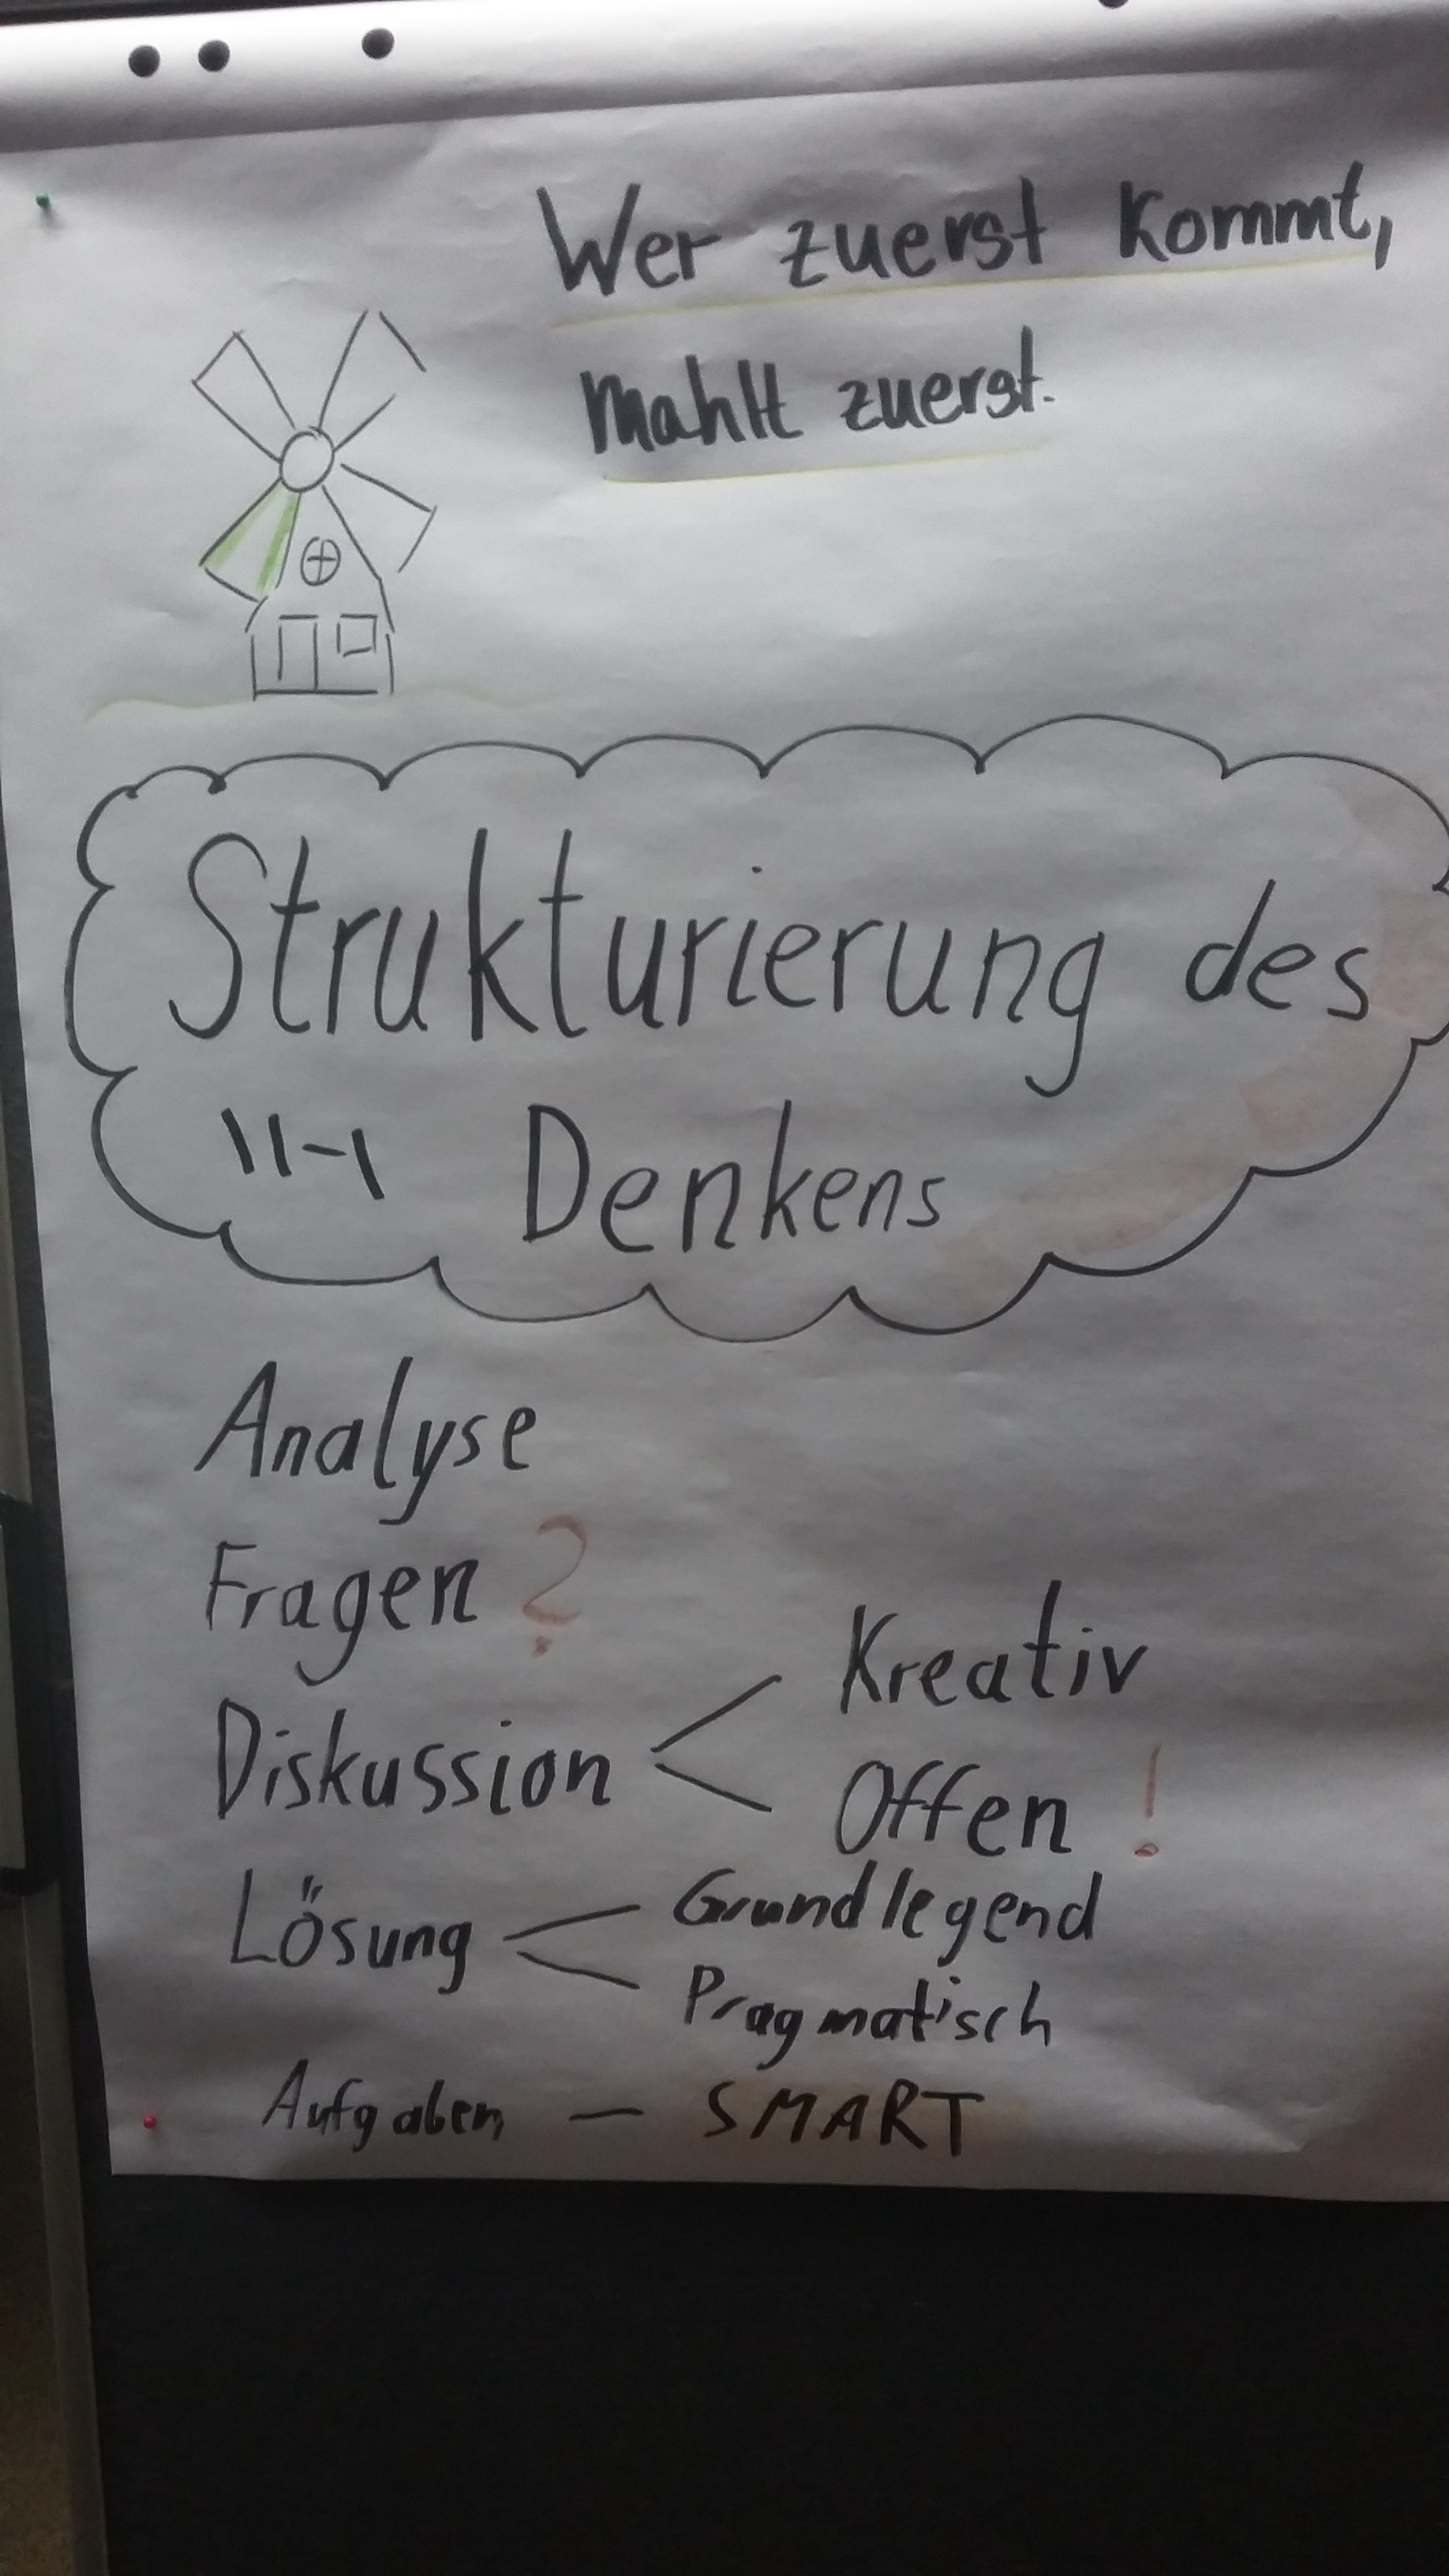 Wer zuerst kommt,
mahlt zuerst.
Strukturierung des
Denkens
Analyse
Fragen ?
Diskussion < Kreativ
Offen !
Lösung < Grundlegend
Pragmatisch
Aufgaben — SMART